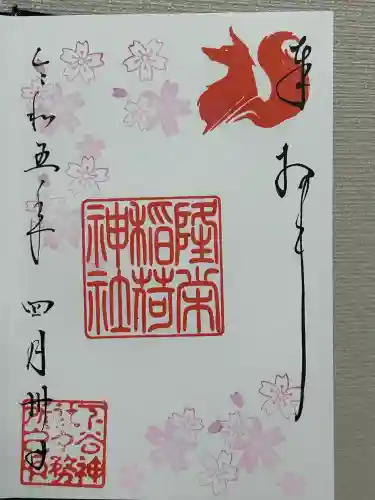 奉拝
隆栄
稲荷
神社
令和五年 四月卅日
下谷神